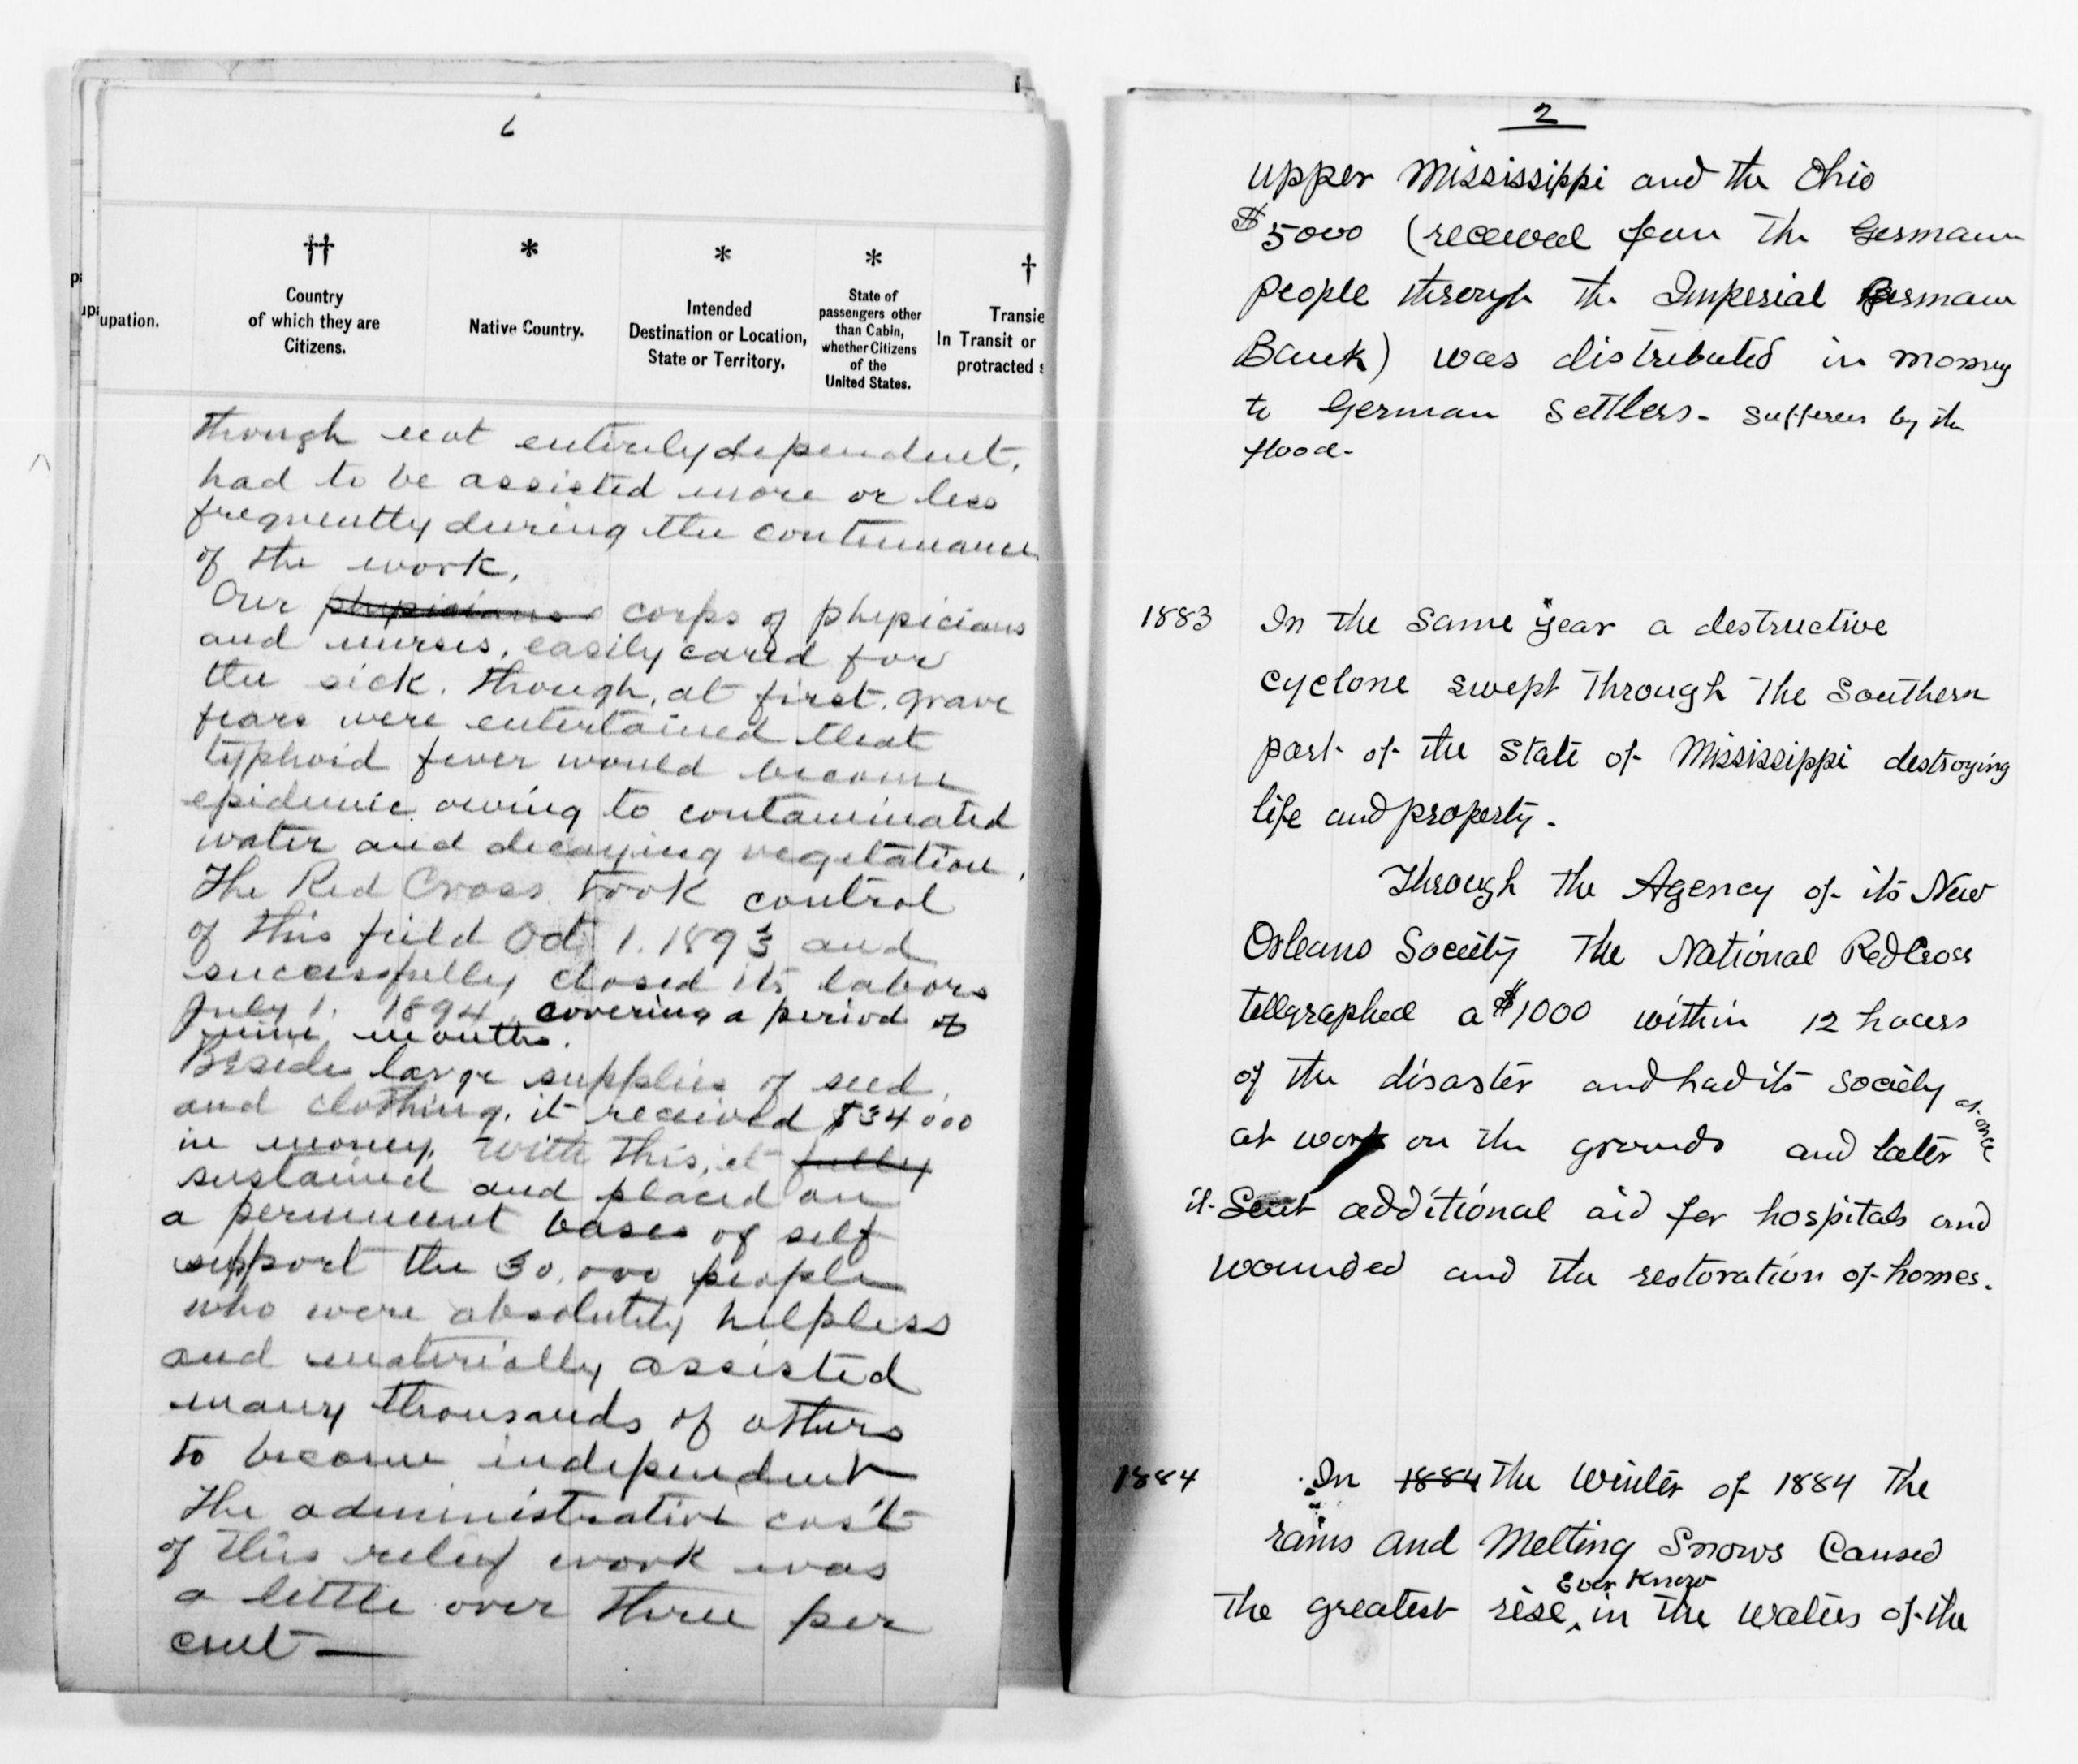 6
upation.
††
Country
of which they are
Citizens.
*
Native Country.
*
Intended
Destination or Location,
State or Territory.
*
State of
passengers other
than Cabin,
whether Citizens
of the
United States.
†
Transie
In Transit or
protracted s
though not entirely dependent,
had to be assisted more or less
frequently during the continuance
of the work.
Our physicians corps of physicians
and nurses, easily cared for
the sick. Though, at first, grave
fears were entertained that
typhoid fever would become
epidemic owing to contaminated
water and decaying vegetation.
The Red Cross took control
of this field Oct 1. 1893 and
successfully closed its labors
July 1. 1894, covering a period of
nine months.
Beside large supplies of seed,
and clothing, it received $34000
in money. With this, it fully
sustained and placed on
a permenent bases of self
support the 30,000 people
who were absolutely helpless
and materially assisted
many thousands of others
to become independent
The administrative cost
of this relief work was
a little over three per
cent —
2
upper Mississippi and the Ohio
$5000 (received from the German
people through the Imperial German
Bank) was distributed in money
to German settlers - sufferers by the
flood -
1883 In the same year a destructive
cyclone swept through the Southern
part of the State of Mississippi destroying
life and property -
Through the Agency of its New
Orleans Society the National Red Cross
tellgraphed a $1000 within 12 hours
of the disaster and had its society at once
at work on the grounds and later
it sent additional aid for hospitals and
wounded and the restoration of homes.
1884 In 1884 the winter of 1884 the
rains and Melting Snows Caused
Ever Know
the greatest rise, in the waters of the